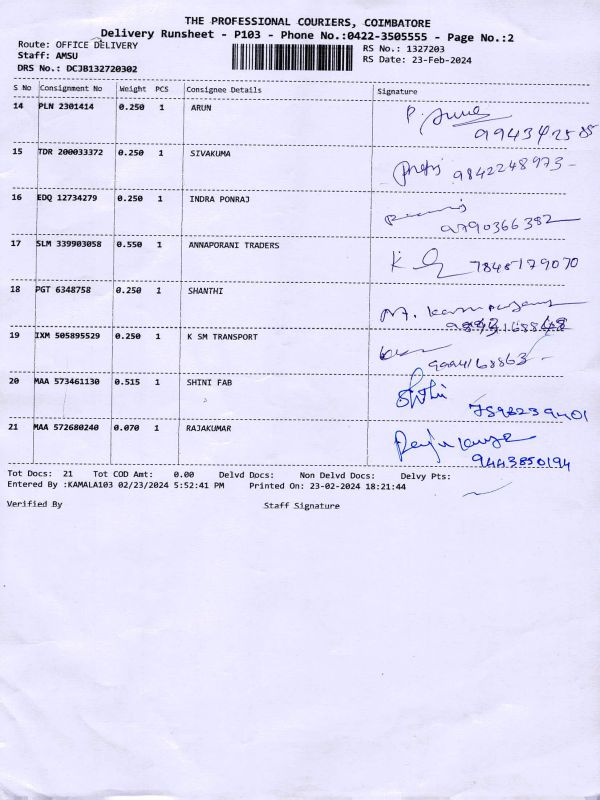 THE PROFESSIONAL COURIERS, COIMBATORE
Delivery Runsheet - P103 - Phone No.:0422-3505555 - Page No.:2
Route: OFFICE DELIVERY
Staff: AMSU
DRS No.: DCJB132720302
RS No.: 1327203
RS Date: 23-Feb-2024
S No Consignment No Weight PCS Consignee Details Signature
14 PLN 2301414 0.250 1 ARUN
15 TDR 200033372 0.250 1 SIVAKUMA
9842248973
16 EDQ 12734279 0.250 1 INDRA PONRAJ
9790366382
17 SLM 339903058 0.550 1 ANNAPORANI TRADERS
7845179070
18 PGT 6348758 0.250 1 SHANTHI
19 IXM 505895529 0.250 1 K SM TRANSPORT
9994168863
20 MAA 573461130 0.515 1 SHINI FAB
7598239401
21 MAA 572680240 0.070 1 RAJAKUMAR
9443850194
Tot Docs: 21 Tot COD Amt: 0.00 Delvd Docs: Non Delvd Docs: Delvy Pts:
Entered By :KAMALA103 02/23/2024 5:52:41 PM Printed On: 23-02-2024 18:21:44
Verified By Staff Signature